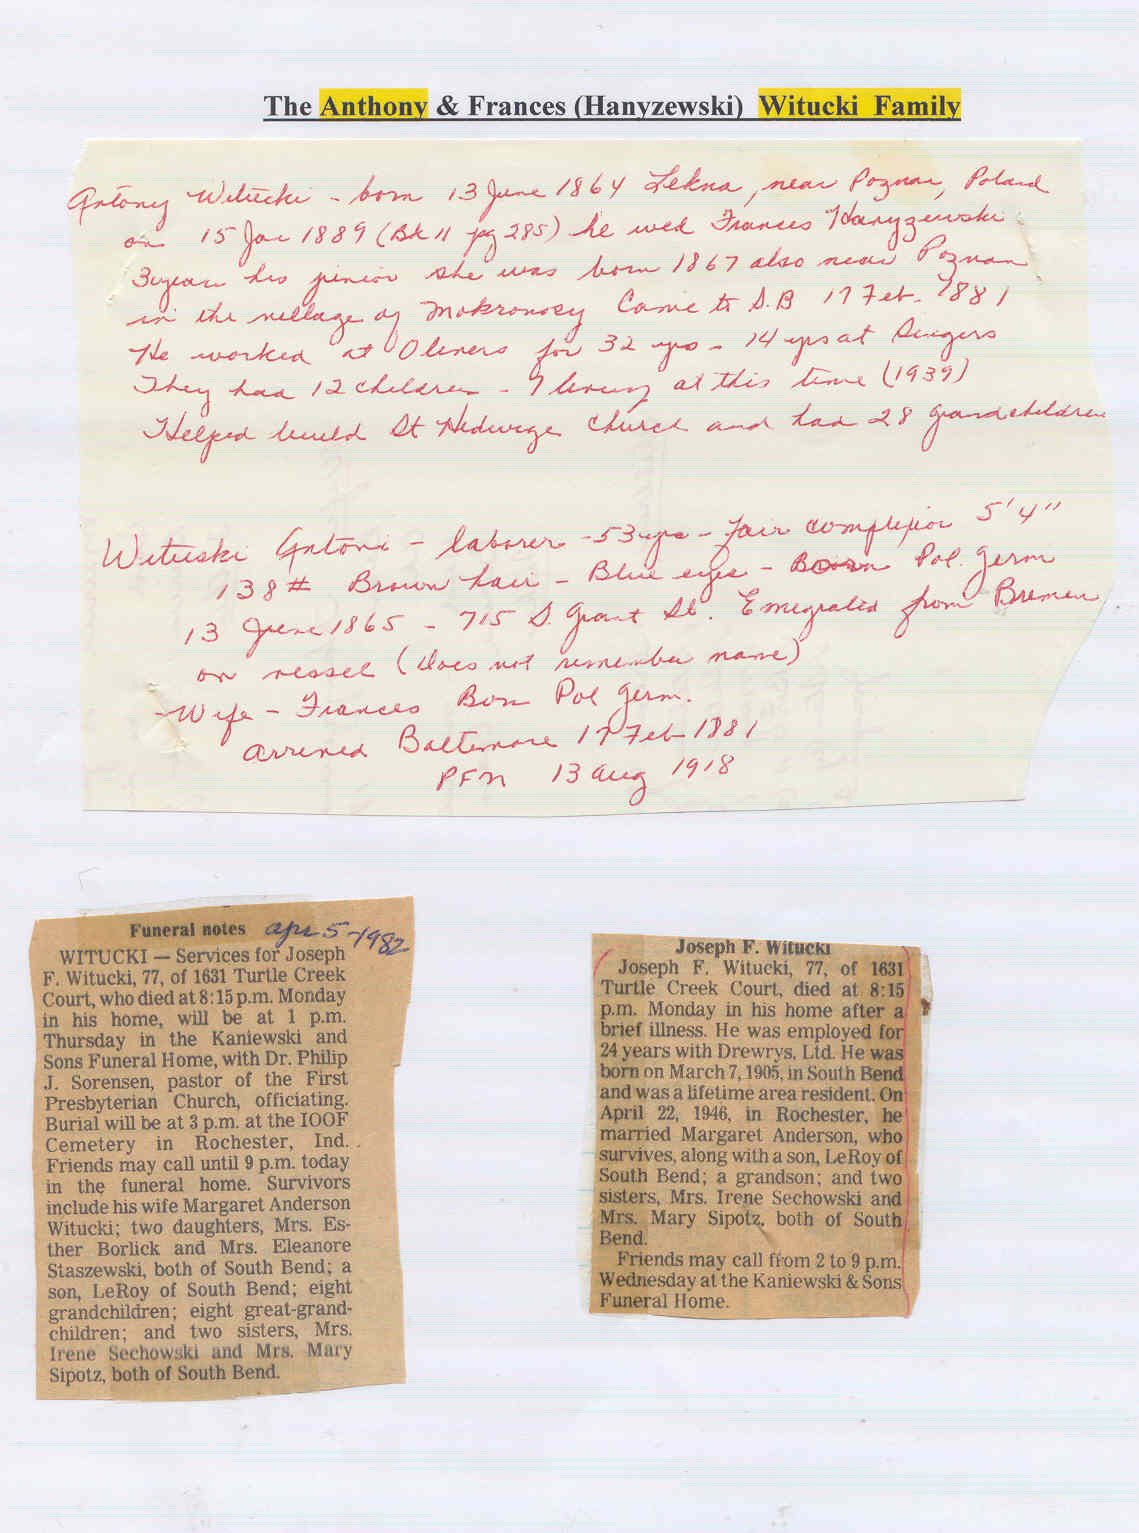 The Anthony & Frances (Hanyzewski) Witucki Family
Antony Witucki - born 13 June 1864 Lekna, near Poznan, Poland
on 15 Jan 1889 (Bk 11 pg 285) he wed Frances Hanyzewski
3 years his junior she was born 1867 also near Poznan
in the village of Mokronosy Came to S.B 17 Feb. 1881
He worked at Olivers for 32 yrs - 14 yrs at Singers
They had 12 children - 7 living at this time (1939)
Helped build St Hedwige Church and had 28 grandchildren
Wituski Antoni - laborer - 53 yrs - fair complexion 5'4"
138# Brown hair - Blue eyes - Born Pol. Germ
13 June 1865 - 715 S. Grant St. Emegrated from Bremen
on vessel (does not remember name)
- Wife - Frances Born Pol Germ.
arrived Baltemore 17 Feb 1881
PFN 13 Aug 1918
Funeral notes apr 5-1982
WITUCKI — Services for Joseph
F. Witucki, 77, of 1631 Turtle Creek
Court, who died at 8:15 p.m. Monday
in his home, will be at 1 p.m.
Thursday in the Kaniewski and
Sons Funeral Home, with Dr. Philip
J. Sorensen, pastor of the First
Presbyterian Church, officiating.
Burial will be at 3 p.m. at the IOOF
Cemetery in Rochester, Ind.
Friends may call until 9 p.m. today
in the funeral home. Survivors
include his wife Margaret Anderson
Witucki; two daughters, Mrs. Es-
ther Borlick and Mrs. Eleanore
Staszewski, both of South Bend; a
son, LeRoy of South Bend; eight
grandchildren; eight great-grand-
children; and two sisters, Mrs.
Irene Sechowski and Mrs. Mary
Sipotz, both of South Bend.
Joseph F. Witucki
Joseph F. Witucki, 77, of 1631
Turtle Creek Court, died at 8:15
p.m. Monday in his home after a
brief illness. He was employed for
24 years with Drewrys, Ltd. He was
born on March 7, 1905, in South Bend
and was a lifetime area resident. On
April 22, 1946, in Rochester, he
married Margaret Anderson, who
survives, along with a son, LeRoy of
South Bend; a grandson; and two
sisters, Mrs. Irene Sechowski and
Mrs. Mary Sipotz, both of South
Bend.
Friends may call ffrom 2 to 9 p.m.
Wednesday at the Kaniewski & Sons
Funeral Home.